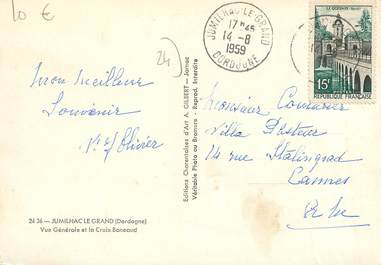 10 €
24)
JUMILHAC-LE-GRAND
17 H 45
14-8
1959
DORDOGNE
LE QUESNOY
15F
RÉPUBLIQUE FRANÇAISE
Mon meilleur
Souvenir
Olivier
Editions Charentaises d'Art A. GILBERT - Jarnac
Véritable Photo au Bromure - Reprod. Interdite
Monsieur Couturier
Villa Pasteur
14 rue Stalingrad
Cannes
24 36 - JUMILHAC LE GRAND (Dordogne)
Vue Générale et la Croix Banceaud